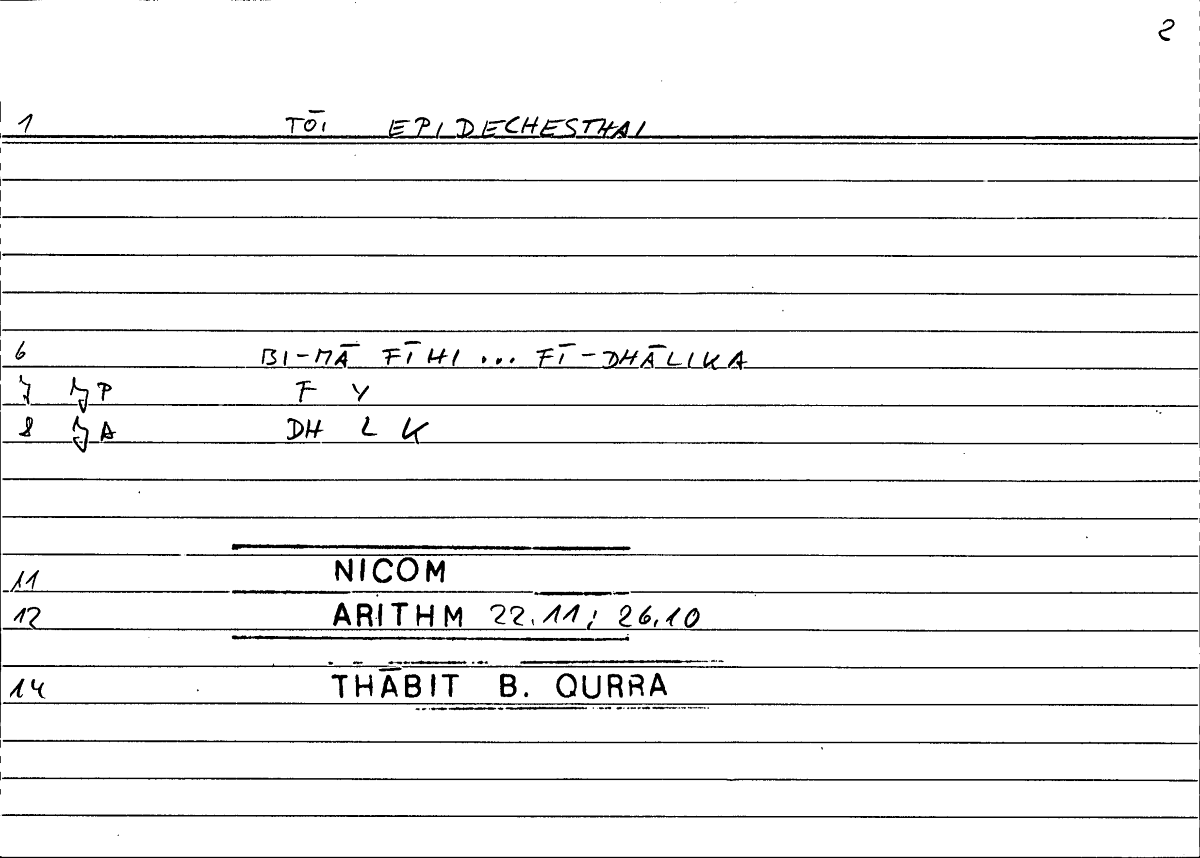 2
1 TŌI EPIDECHESTHAI
6 BI-MĀ FĪHI ... FĪ-DHĀLIKA
7 P F Y
8 A DH L K
11 NICOM
12 ARITHM 22.11; 26.10
14 THĀBIT B. QURRA